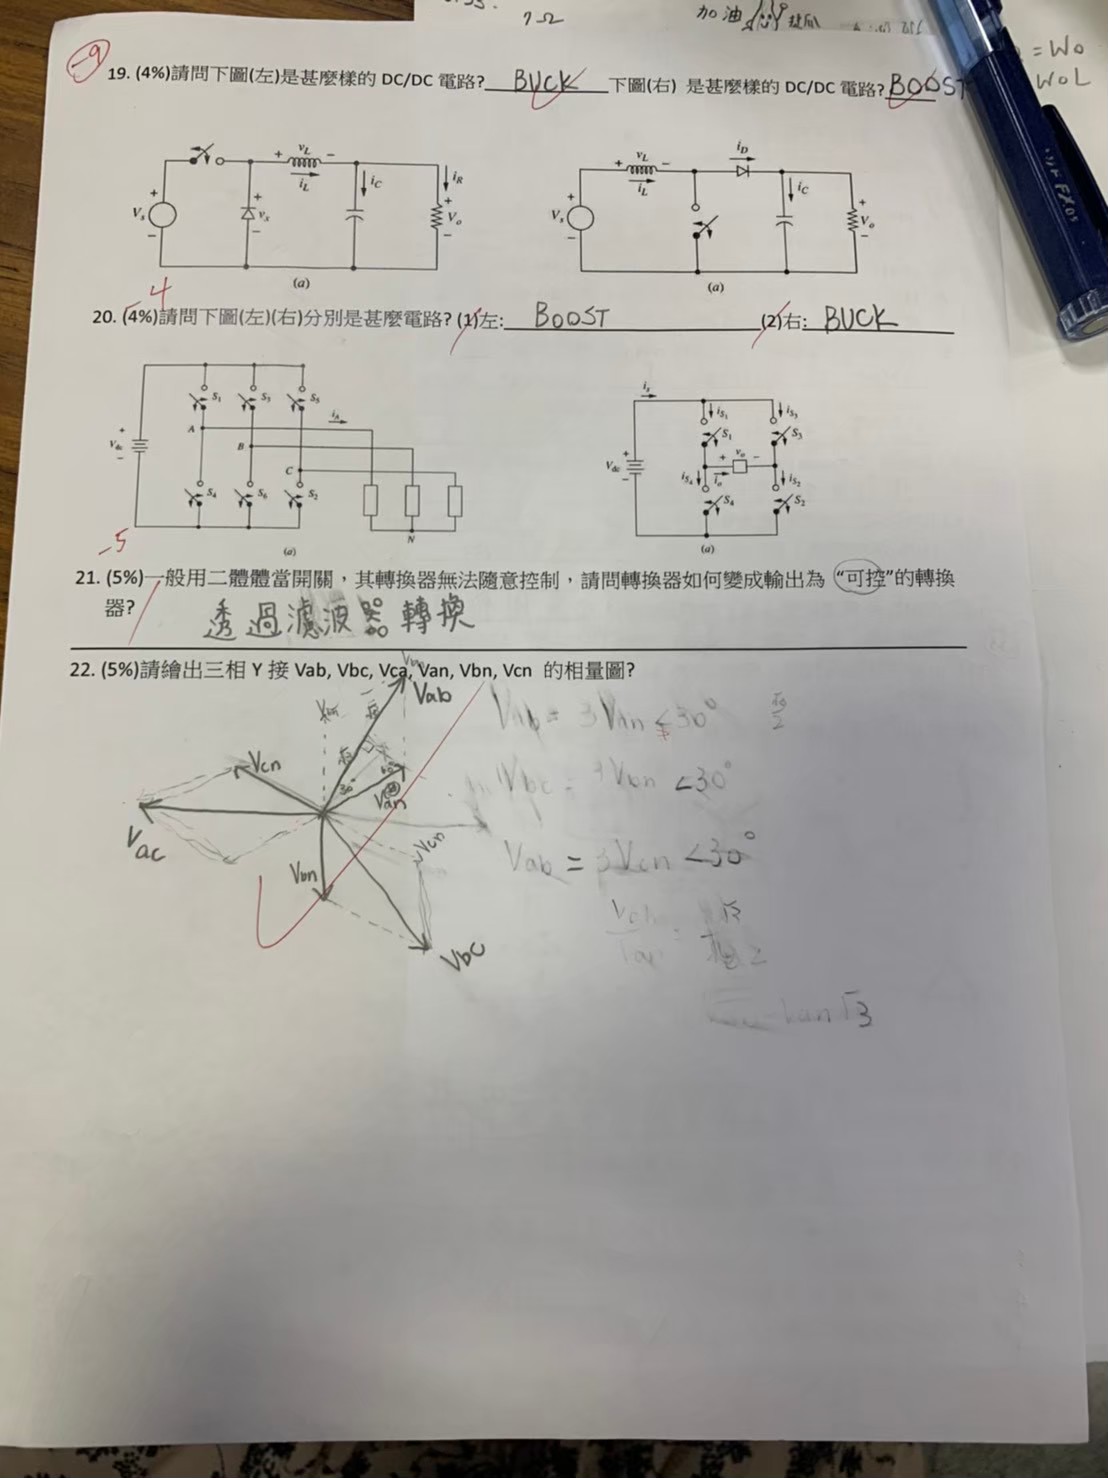 1Ω
加油
= Wo
WoL
-9
19. (4%)請問下圖(左)是甚麼樣的 DC/DC 電路? BUCK 下圖(右) 是甚麼樣的 DC/DC 電路? BOOST
+ vL - iL
Vs + -
+ vx -
iC
iR
+ Vo -
(a)
+ vL - iL
iD
Vs + -
iC
+ Vo -
(a)
-4
20. (4%)請問下圖(左)(右)分別是甚麼電路? (1)左: BOOST (2)右: BUCK
S1 S3 S5
iA
A
B
C
Vdc + -
S4 S6 S2
N
(a)
is
iS1 iS3
S1 S3
Vdc + -
+ vo -
io
iS4 iS2
S4 S2
(a)
-5
21. (5%)一般用二體體當開關，其轉換器無法隨意控制，請問轉換器如何變成輸出為 “可控”的轉換
器?
透過濾波器轉換
22. (5%)請繪出三相 Y 接 Vab, Vbc, Vca, Van, Vbn, Vcn 的相量圖?
Vab
Vcn
30°
Van
Vac
Vbn
Vcn
Vbc
Vab = 3Van <30°
Vbc = 3Vbn <30°
Vab = 3Vcn <30°
tan √3